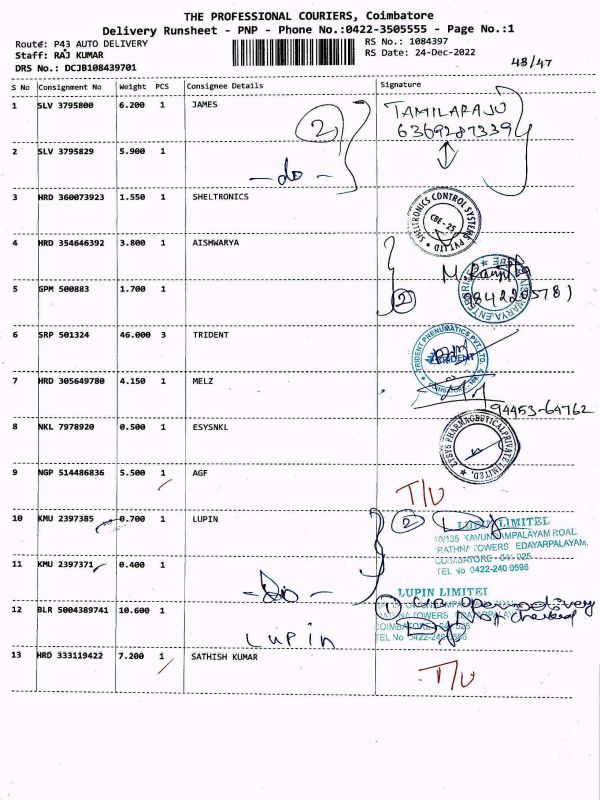 THE PROFESSIONAL COURIERS, Coimbatore
Delivery Runsheet - PNP - Phone No.:0422-3505555 - Page No.:1
Route: P43 AUTO DELIVERY
RS No.: 1084397
Staff: RAJ KUMAR
RS Date: 24-Dec-2022
DRS No.: DCJB108439701
48/47
S No Consignment No Weight PCS Consignee Details Signature
1 SLV 3795800 6.200 1 JAMES
TAMILARAJU
2
6369287339
2 SLV 3795829 5.900 1
-do-
3 HRD 360073923 1.550 1 SHELTRONICS
SHELTRONICS CONTROL SYSTEMS PVT LTD
CBE-25
4 HRD 354646392 3.800 1 AISHWARYA
5 GPM 500883 1.700 1
2
6 SRP 501324 46.000 3 TRIDENT
TRIDENT PNEUMATICS PVT. LTD.
TRIDENT
7 HRD 305649780 4.150 1 MELZ
94453-64762
8 NKL 7978920 0.500 1 ESYSNKL
9 NGP 514486836 5.500 1 AGF
T/U
10 KMU 2397385 0.700 1 LUPIN
2
LUPIN LIMITED
10/135 KAVUNDAMPALAYAM ROAD,
RATHNA TOWERS EDAYARPALAYAM,
COIMBATORE - 641 025
TEL No 0422-240 0596
11 KMU 2397371 0.400 1
-do-
LUPIN LIMITED
12 BLR 5004389741 10.600 1
1
Lupin
13 HRD 333119422 7.200 1 SATHISH KUMAR
T/U